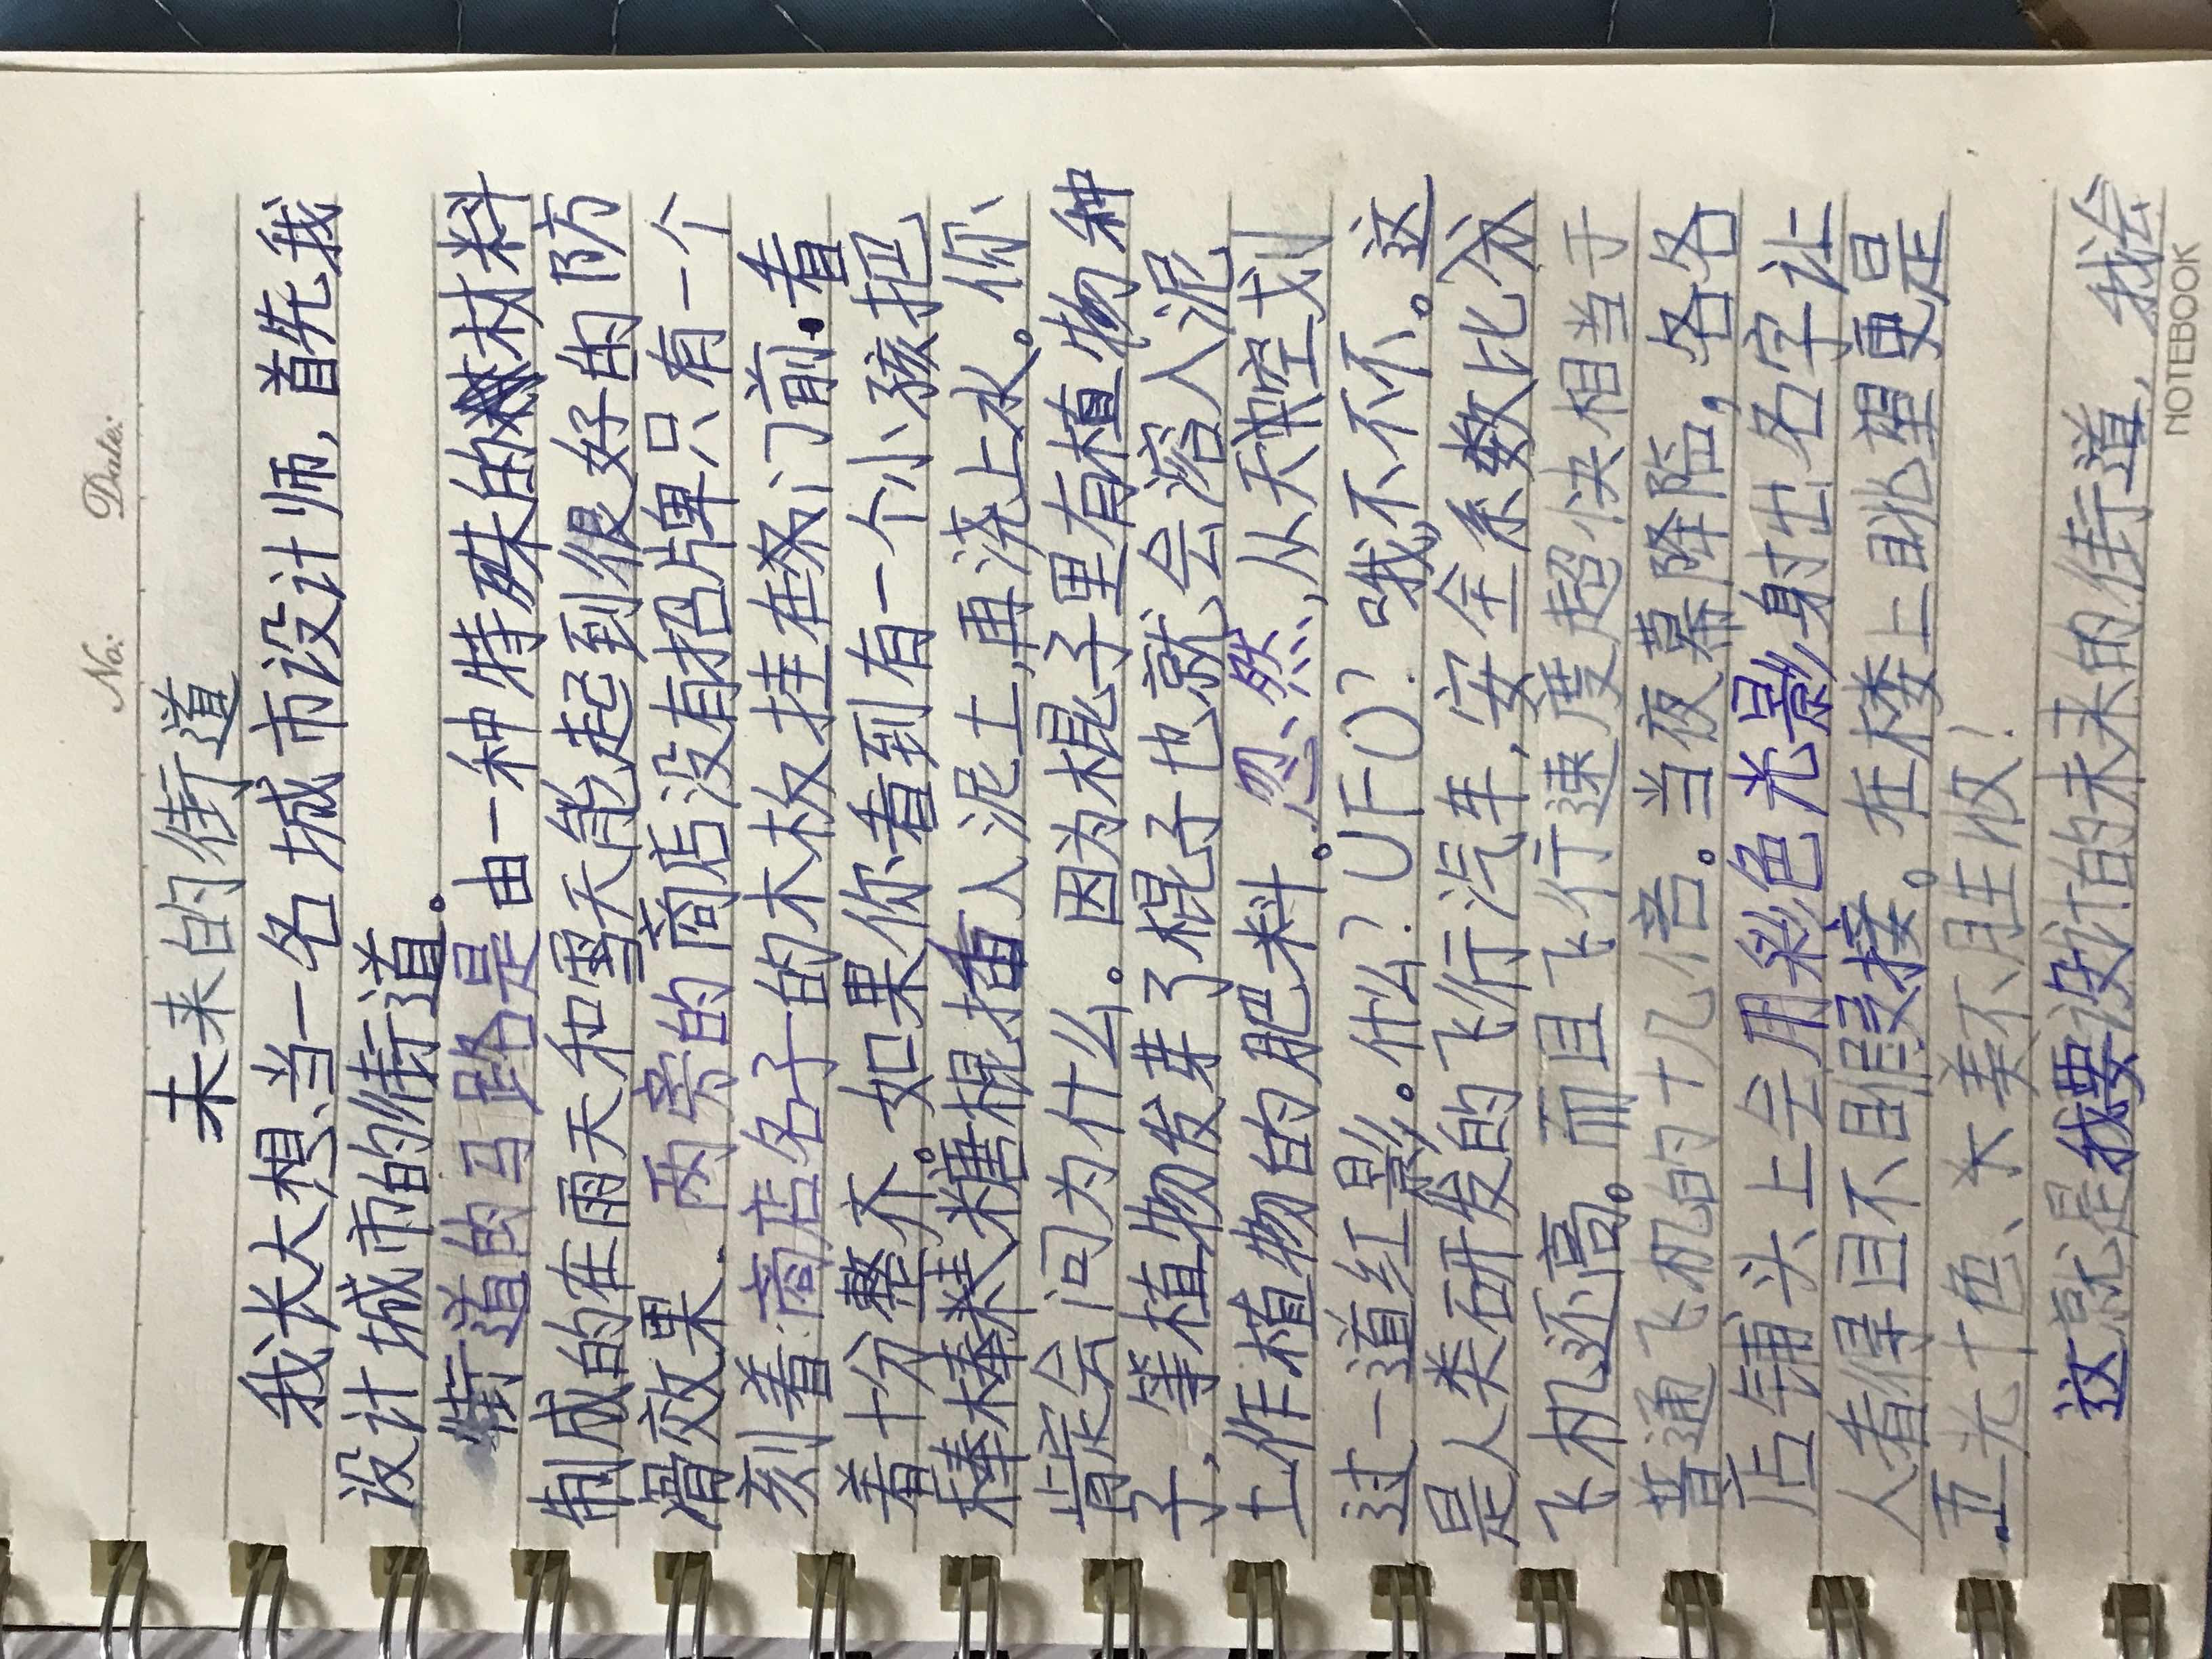 No: Date:
未来的街道
我长大想当一名城市设计师,首先我
设计城市的街道。
街道的马路是由一种特殊的材料
制成的在雨天和雪天能起到很好的防
滑效果.两旁的商店没有招牌只有一个
刻着:商店名子的木枚挂在条门前.看
着十分整齐。如果你看到有一个小孩把
棒棒糖棍插入泥土,再浇上水。你
肯定会问为什么。因为棍子里有植物种
子,等植物发芽了棍子也就会溶入泥
土.作植物的肥料。忽然,从天空划
过一道红影。什么?UFO?哦,不不不。这
是人类研发的飞行汽车,安全系数比公
飞机还高。而且飞行速度超快相当于
普通飞机的十几倍。当夜幕降临,各各
店铺头上会用彩色光影射出名字让
人看得目不暇接。在楼上眺望更是
五光十色、大美不胜收!
这就是我要设计的未来的街道,我会
NOTEBOOK